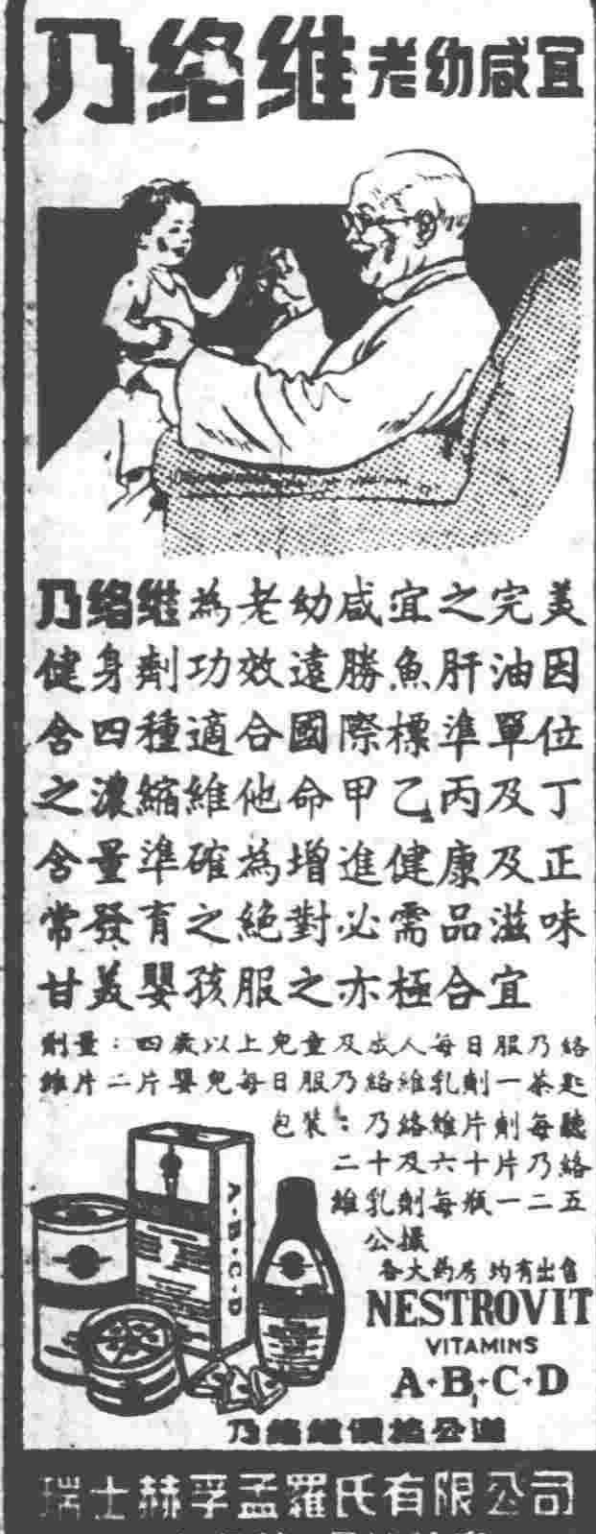 乃絡維 老幼咸宜
乃絡維為老幼咸宜之完美
健身劑功效遠勝魚肝油因
含四種適合國際標準單位
之濃縮維他命甲乙丙及丁
含量準確為增進健康及正
常發育之絕對必需品滋味
甘美嬰孩服之亦極合宜
劑量：四歲以上兒童及成人每日服乃絡
維片二片嬰兒每日服乃絡維乳劑一茶匙
包裝：乃絡維片劑每聽
二十及六十片乃絡
維乳劑每瓶一二五
公撮
各大葯房均有出售
NESTROVIT
VITAMINS
A·B·C·D
A·B·C·D
乃絡維價格公道
瑞士赫孚孟羅氏有限公司